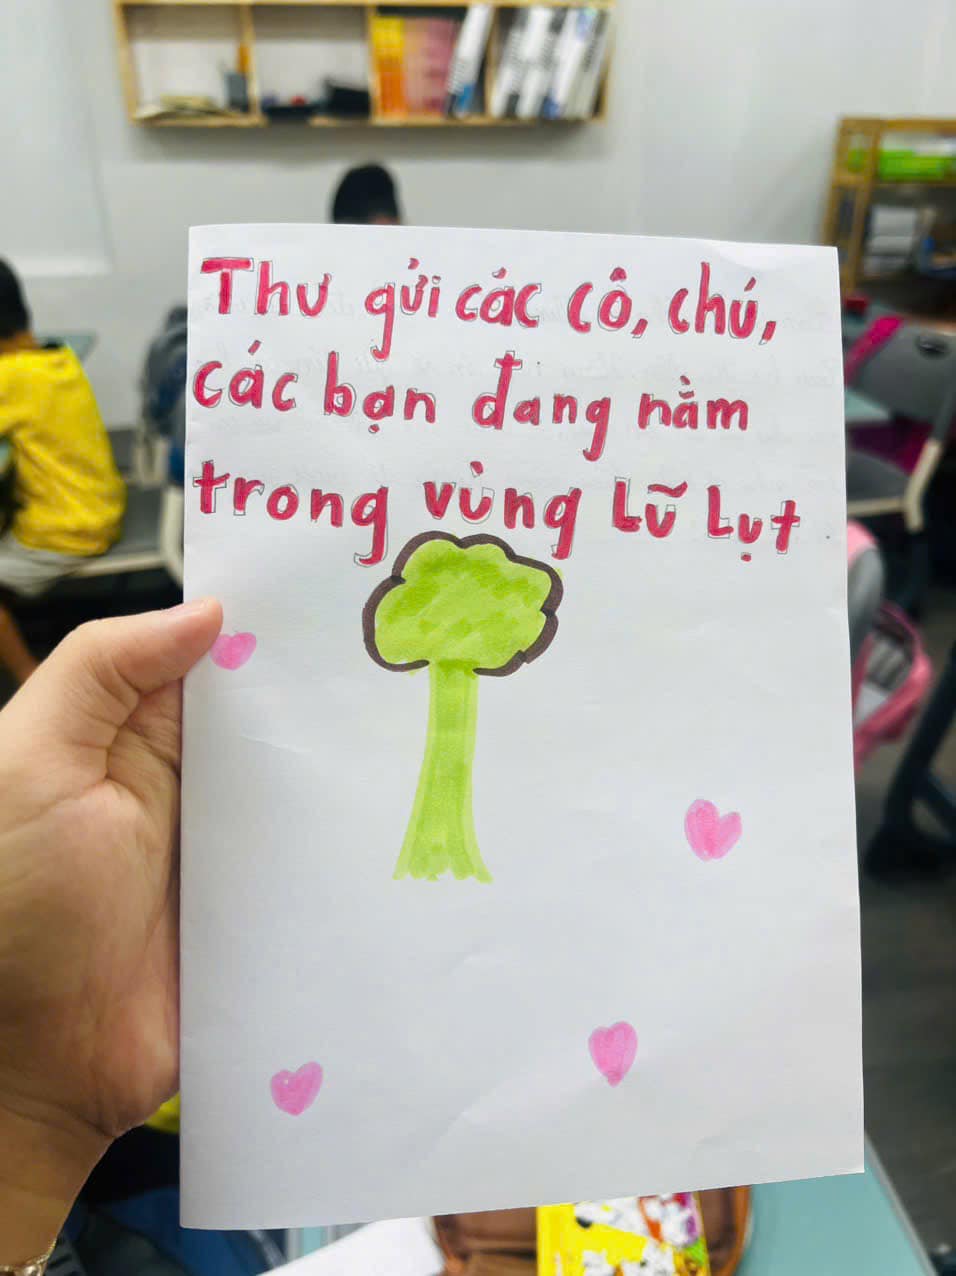 Thư gửi các cô, chú,
các bạn đang nằm
trong vùng Lũ Lụt